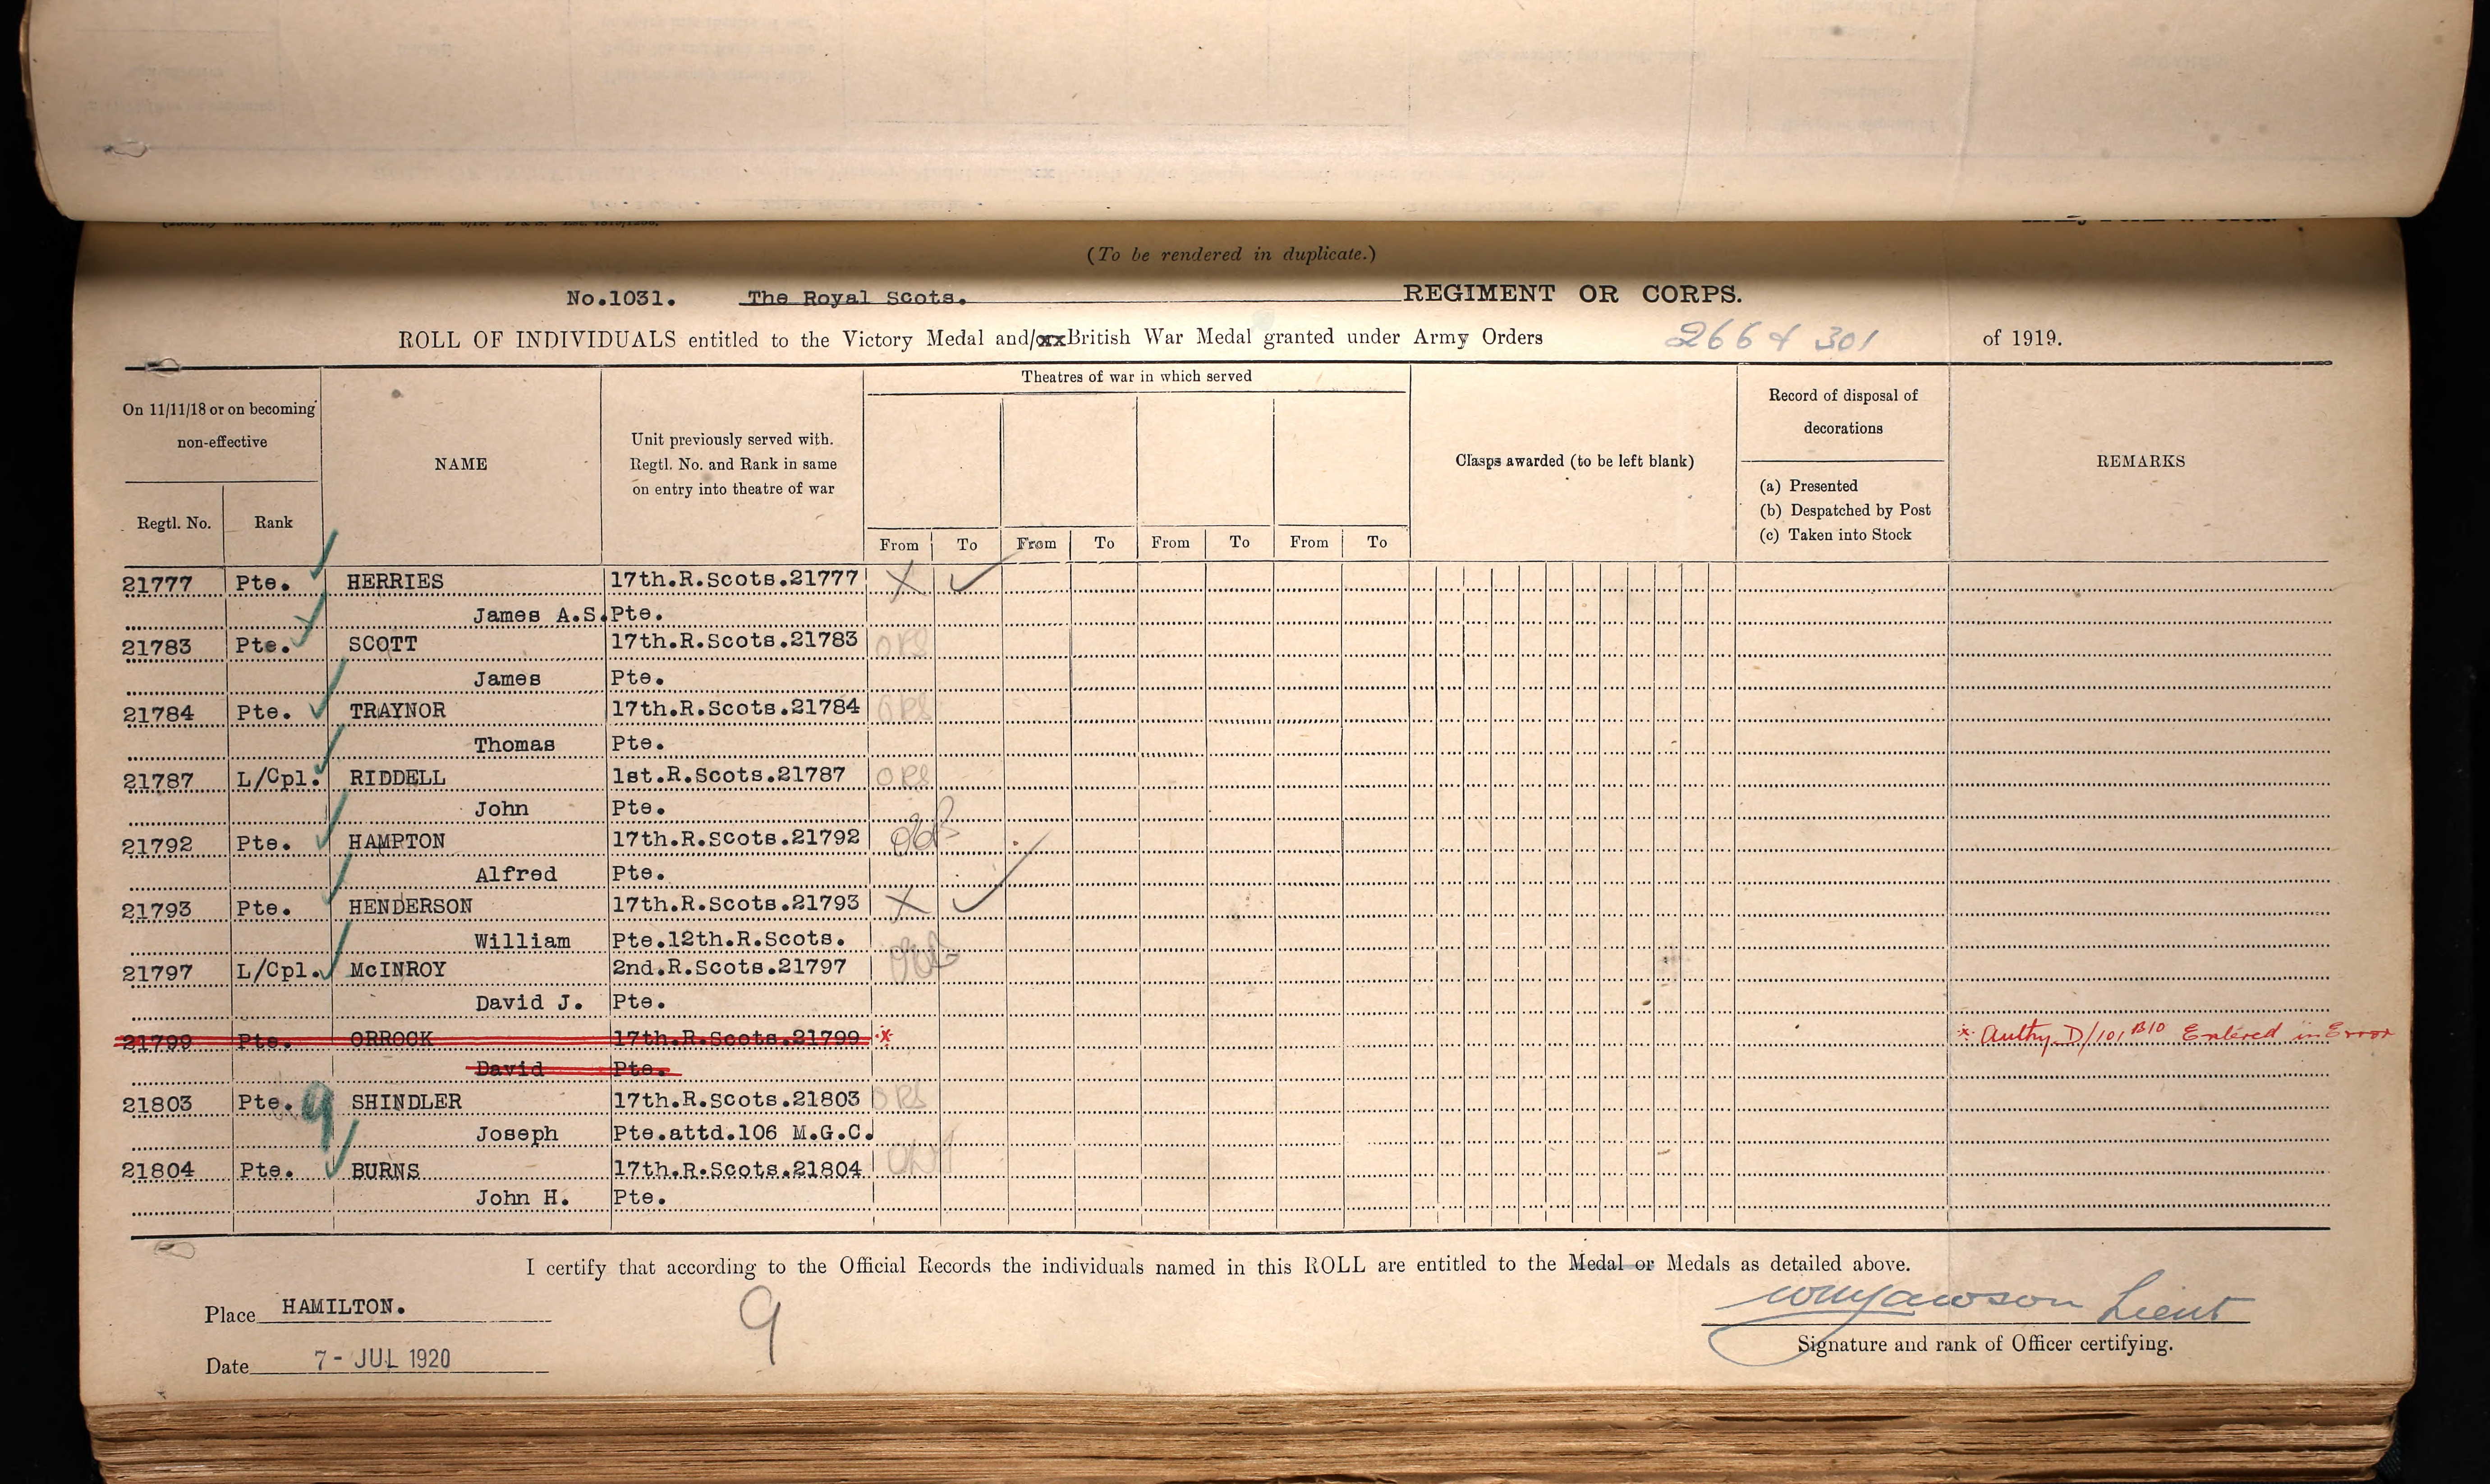 (To be rendered in duplicate.)
No.1031. The Royal Scots. REGIMENT OR CORPS.
ROLL OF INDIVIDUALS entitled to the Victory Medal and/or British War Medal granted under Army Orders 266 & 301 of 1919.
On 11/11/18 or on becoming non-effective
Regtl. No.
Rank
NAME
Unit previously served with. Regtl. No. and Rank in same on entry into theatre of war
Theatres of war in which served
From To From To From To From To
Clasps awarded (to be left blank)
Record of disposal of decorations
(a) Presented
(b) Despatched by Post
(c) Taken into Stock
REMARKS
21777 Pte. HERRIES 17th.R.Scots.21777 X
James A.S. Pte.
21783 Pte. SCOTT 17th.R.Scots.21783 ORS
James Pte.
21784 Pte. TRAYNOR 17th.R.Scots.21784 ORS
Thomas Pte.
21787 L/Cpl. RIDDELL 1st.R.Scots.21787 ORS
John Pte.
21792 Pte. HAMPTON 17th.R.Scots.21792
Alfred Pte.
21793 Pte. HENDERSON 17th.R.Scots.21793 X
William Pte.12th.R.Scots.
21797 L/Cpl. McINROY 2nd.R.Scots.21797
David J. Pte.
21799 Pte. ORROCK 17th.R.Scots.21799 * * Authy D/101 B10 Entered in Error
David Pte.
21803 Pte. 9 SHINDLER 17th.R.Scots.21803 ORS
Joseph Pte.attd.106 M.G.C.
21804 Pte. BURNS 17th.R.Scots.21804
John H. Pte.
I certify that according to the Official Records the individuals named in this ROLL are entitled to the Medal or Medals as detailed above.
Place HAMILTON.
9
Lieut
Signature and rank of Officer certifying.
Date 7 - JUL 1920